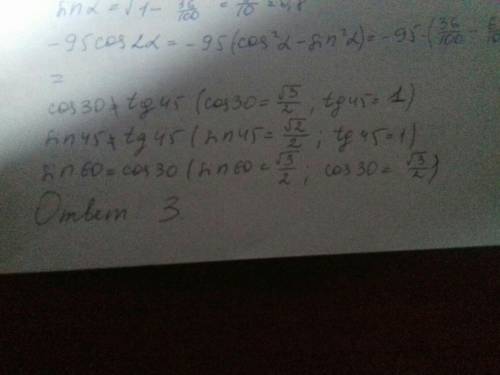 sin α = √1 - 36/100 = 8/10 = 0,8
-95cos2α = -95(cos²α - sin²α) = -95·(36/100 -
=
cos30 ≠ tg45 (cos30 = √3/2 ; tg45 = 1)
sin45 ≠ tg45 (sin45 = √2/2 ; tg45 = 1)
sin60 = cos30 (sin60 = √3/2 ; cos30 = √3/2)
Ответ 3